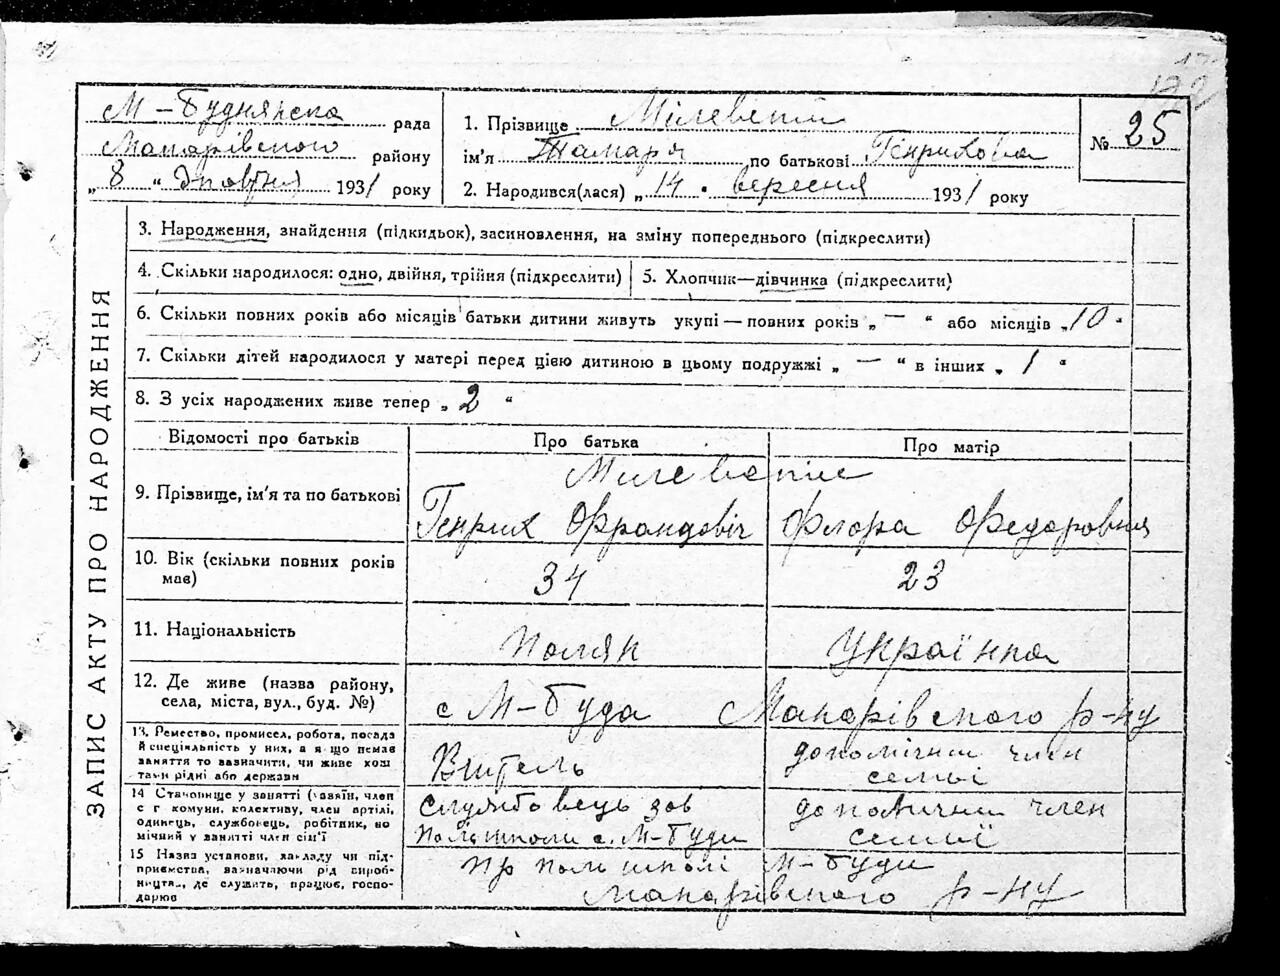 М-Буднянска рада
Макарівского району
„ 8 “ Жовтня 1931 року
1. Прізвище Мілевскій
ім'я Тамара по батькові Генрихова
2. Народився(лася) „ 14 “ вересня 1931 року
№ 25
ЗАПИС АКТУ ПРО НАРОДЖЕННЯ
3. Народження, знайдення (підкидьок), засиновлення, на зміну попереднього (підкреслити)
4. Скільки народилося: одно, двійня, трійня (підкреслити)
5. Хлопчик—дівчинка (підкреслити)
6. Скільки повних років або місяців батьки дитини живуть укупі — повних років „ — “ або місяців „ 10 “
7. Скільки дітей народилося у матері перед цією дитиною в цьому подружжі „ — “ в інших „ 1 “
8. З усіх народжених живе тепер „ 2 “
Відомості про батьків
Про батька
Про матір
9. Прізвище, ім'я та по батькові
Генрих Францовіч
Флора Федоровня
10. Вік (скільки повних років
має)
34
23
11. Національність
Поляк
Українка
12. Де живе (назва району,
села, міста, вул., буд. №)
с М-Буда Макарівского р-ну
13. Ремество, промисел, робота, посада
й спеціяльність у них, а якщо немає
заняття то вазначити, чи живе кош
тами рідні або держави
Вчитель
допомічний член
семьі
14 Становище у занятті (хазяїн, член
с г комуни, колективу, член артілі,
одинець, службовець, робітник, по
мічний у занятті член сім'ї
службовець зав
польшколи с. М-Буди
допомичний член
семьії
15 Назва установи, закладу чи під-
приємства, вазначаючи рід вироб-
ництва, де служить, працює, госпо-
дарює
при польшколі М-Буди
Макарівского р-ну